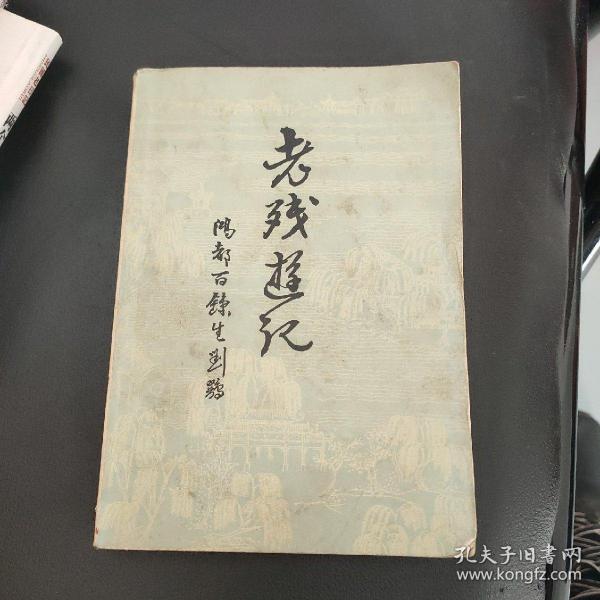 老残遊记
鸿都百鍊生劉鶚
孔夫子旧书网
www.kongfz.com